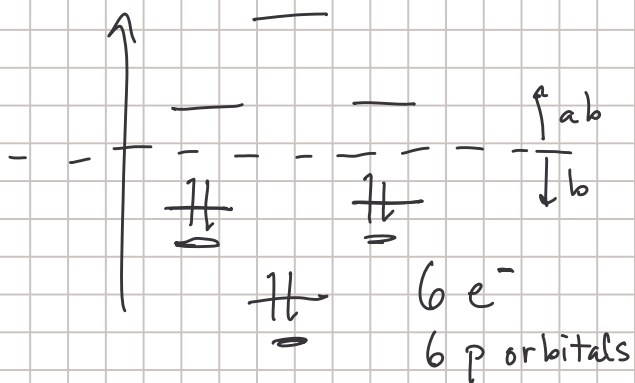 ab
b
6 e⁻
6 p orbitals